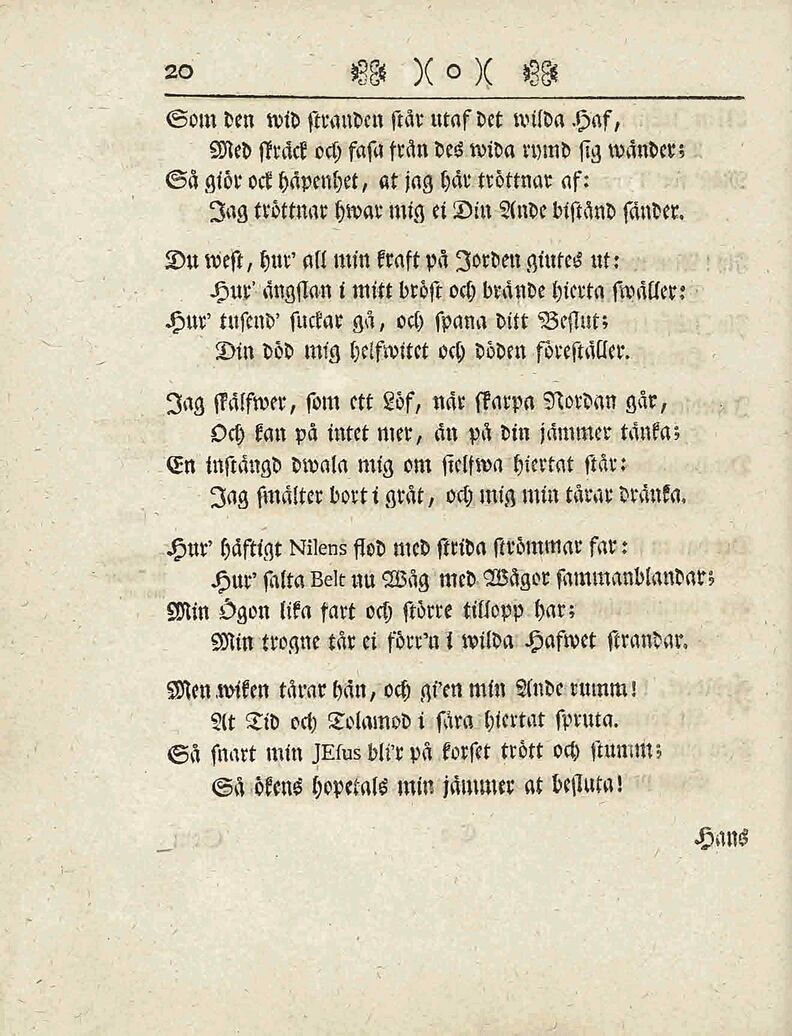 20 )( o )(
Som den wid stranden står utaf det wilda Haf,
Med skräck och fasa från des wida rymd sig wänder;
Så giör ock häpenhet, at jag här tröttnar af:
Jag tröttnar hwar mig ei Din Ande bistånd sänder.
Du west, hur' all min kraft på Jorden giutes ut:
Hur' ängslan i mitt bröst och brände hierta swäller:
Hur' tusend' suckar gå, och spana ditt Beslut;
Din död mig helfwitet och döden föreställer.
Jag skälfwer, som ett Löf, när skarpa Nordan går,
Och kan på intet mer, än på din jämmer tänka;
En instängd dwala mig om sielfwa hiertat står:
Jag smälter bort i gråt, och mig min tårar dränka.
Hur' häftigt Nilens flod med strida strömmar far:
Hur' salta Belt nu Wåg med Wågor sammanblandar;
Min Ögon lika fart och större tillopp har;
Min trogne tår ei förr'n i wilda Hafwet strandar.
Men wiken tårar hän, och gi'en min Ande rumm!
At Tid och Tolamod i såra hiertat spruta.
Så snart min JEsus bli'r på korset trött och stumm;
Så ökens hopetals min jämmer at besluta!
Hans